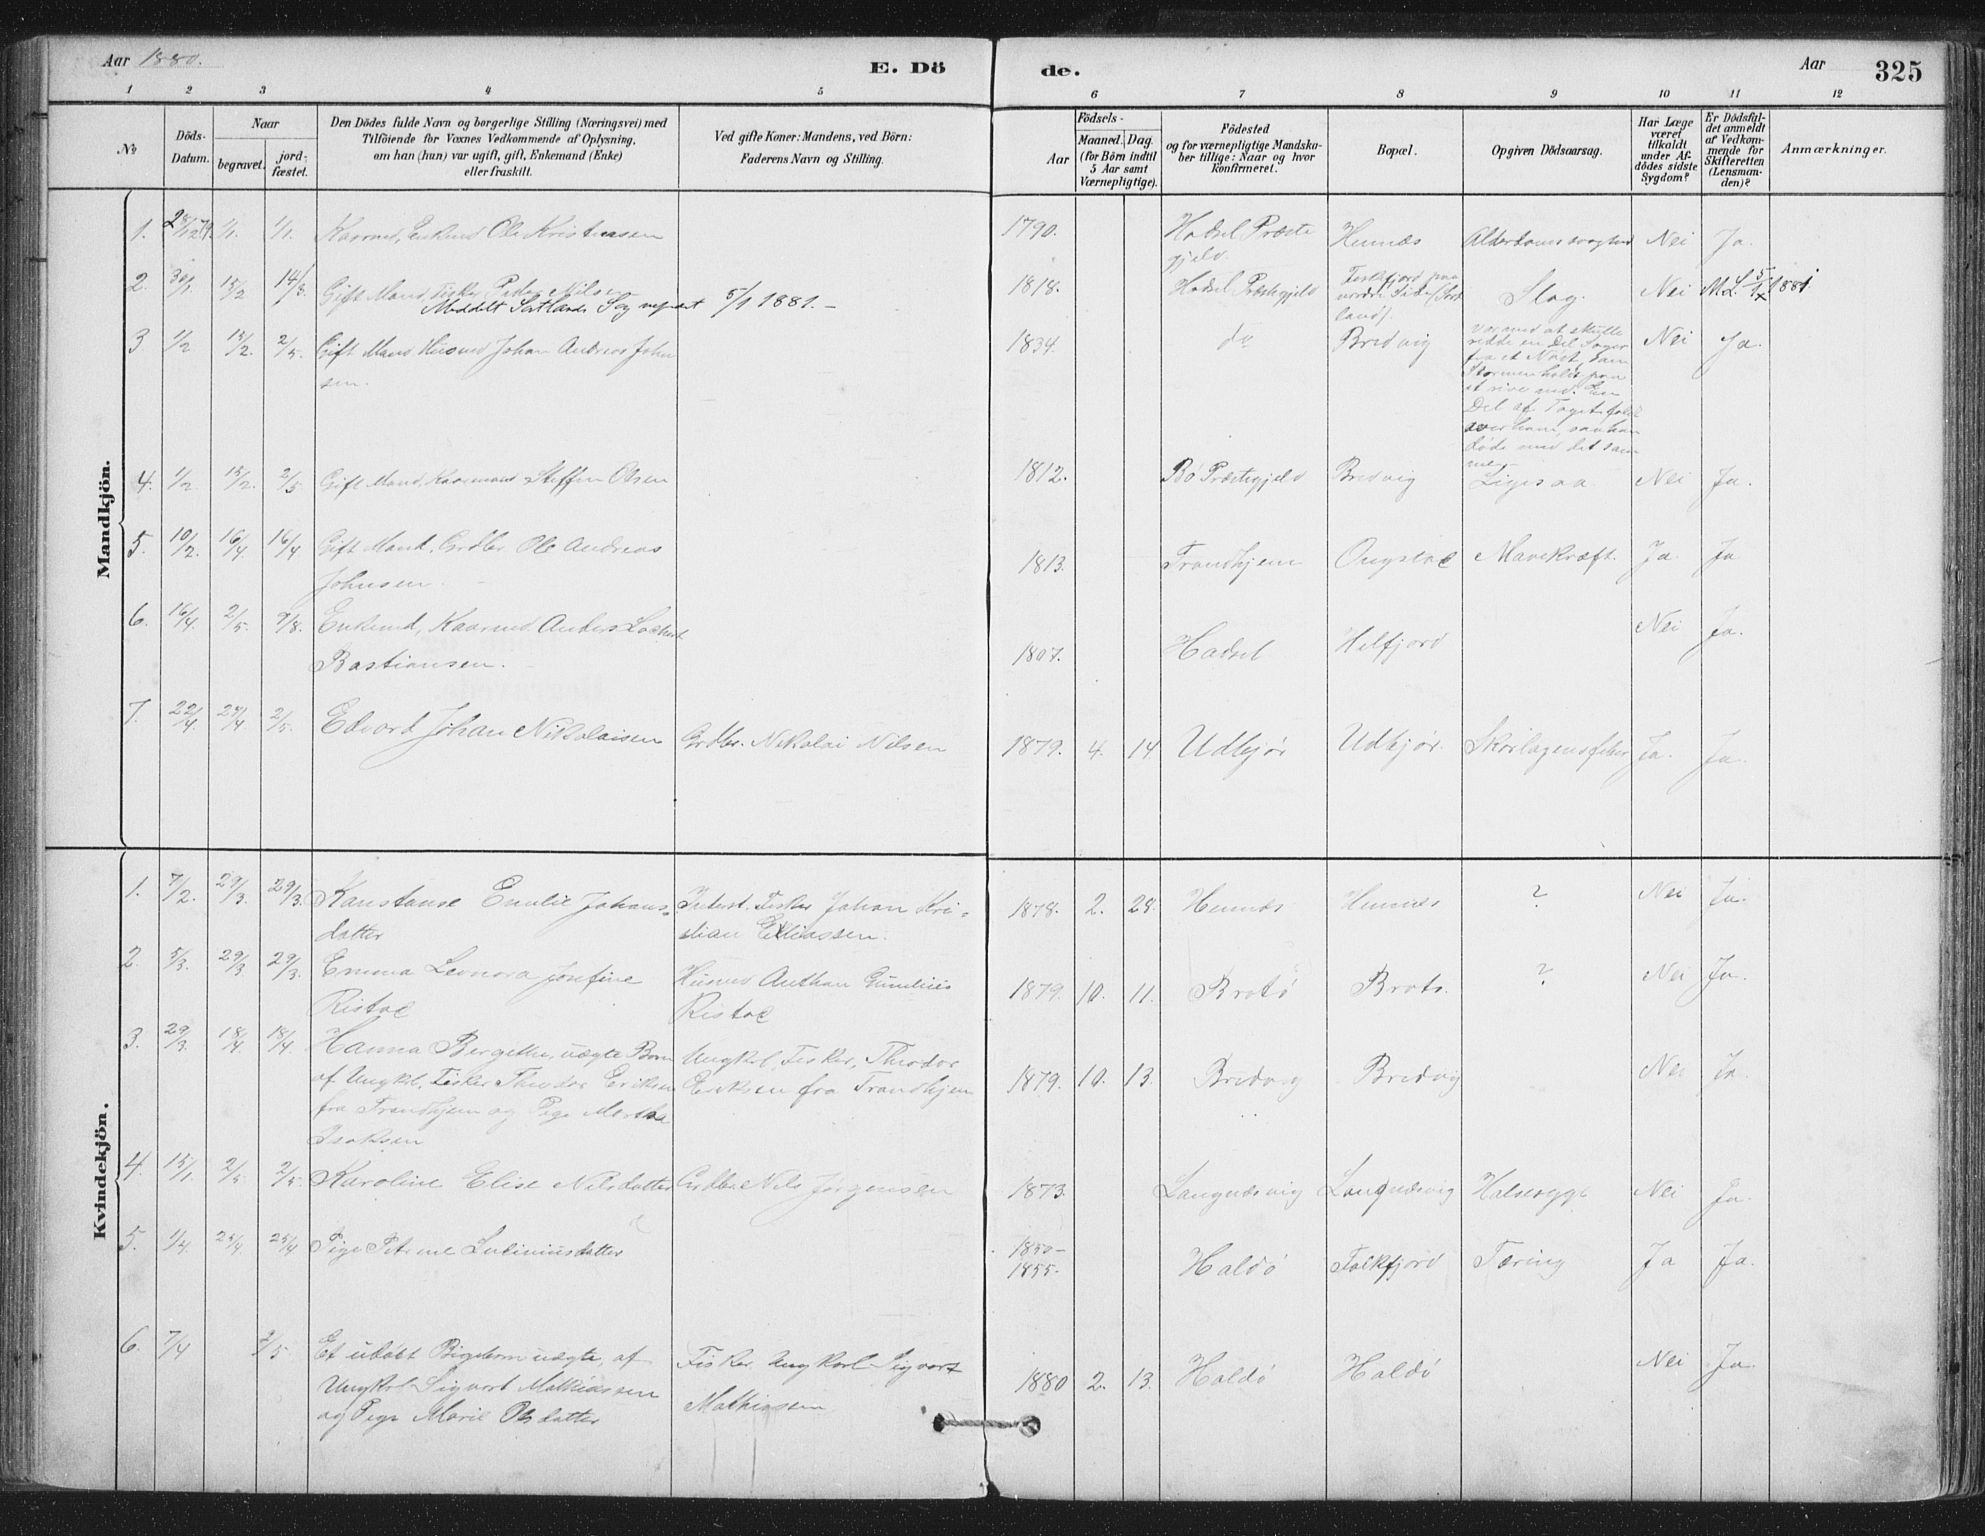 Aar 1880. E. Dö de. Aar 325
1 2 3 4 5 6 7 8 9 10 11 12
No
Döds-Datum.
Naar
begravet.
jordfæstet.
Den Dödes fulde Navn og borgerlige Stilling (Næringsvei) med
Tilföiende for Voxnes Vedkommende af Oplysning,
om han (hun) var ugift, gift, Enkemand (Enke)
eller fraskilt.
Ved gifte Koner: Mandens, ved Börn:
Faderens Navn og Stilling.
Födsels-
Aar
Maaned. Dag.
(for Börn indtil
5 Aar samt
Værnepligtige).
Födested
og for værnepligtige Mandska-
ber tillige: Naar og hvor
konfirmeret.
Bopæl.
Opgiven Dödsaarsag.
Har Læge
været
tilkaldt
under Af-
dödes sidste
Sygdom?
Er Dödsfal-
det anmeldt
af Vedkom-
mende for
Skifteretten
(Lensman-
den)?
Anmærkninger.
Mandkjön.
1. 28/12 79. 1/1. 1/1. Kaarmd, Enkmd Ole Kristensen 1790. Hadsel Præste
gjeld. Hennæs Alderdomssvaghed Nei Ja.
2. 30/1 15/2 14/3. Gift Mand, Fisker Peder Nilsen 1818. Hadsel Præstegjeld paa
nordre Side (Sort
land). Slag. Nei 5/1 1881
Meddelt Sortlands Sogneprest 5/1 1881.-
3 1/2 15/2. 2/5. Gift Mand Husmd Johan Andreas John
sen. 1834. do Bredvig Var med at skulle
redde en Del Sager
fra et Nøst, som
Stormen holdt paa
at rive ned. En
Del af Taget faldt
over ham, saa han
døde med det sam
me. Nei Ja.
4. 1/2. 15/2. 2/5 Gift Mand, Kaarmand Steffen Olsen 1812. Bø Præstegjeld Bredvig Ligesaa Nei Ja.
5. 10/2. 16/4 16/4 Gift Mand, Grdbr. Ole Andreas
Johnsen. 1813. Trondhjem Ongstad Mavekræft. Ja. Ja
6. 16/4. 2/5. 9/8. Enkemd, Kaarmd. Anders Lockert
Bastiansen. 1807. Hadsel Helfjord Nei Ja.
7. 22/4 25/4 2/5. Edvard Johan Nikolaisen Grdbr. Nikolai Nilsen 1879. 4. 14 Udhjør Udhjør. Skarlagensfeber Ja. Ja.
Kvindekjön.
1. 7/2. 29/3. 29/3. Konstanse Emilie Johans-
datter Inderst. Fisker Johan Kri-
stian Elliassen. 1878. 2. 28. Hennæs Hennæs ? Nei Ja.
2. 5/3. 29/3 29/3. Emma Leonora Josefine
Ristad Husmd Anthon Gunelius
Ristad 1879. 10. 11. Brotø Brotø. ? Nei Ja.
3. 29/3 18/4 18/4 Hanna Bergethe, uægte Barn
af Ungkrl, Fisker Theodor Eriksen
fra Trondhjem og Pige Merthe
Isaksen Ungkrl, Fisker, Theodor
Eriksen fra Trondhjem 1879. 10. 13. Bredvig Bredvig Nei Ja.
4. 15/1. 2/5 2/5. Karoline Elise Nilsdatter Grdbr Nils Jørgensen 1873. Langnæsvig Langnæsvig Halssyge Nei Ja.
5. 1/4. 25/4 25/4 Pige Petrine 1850-
1855. Haldø Falkfjord Tæring Ja Ja.
6. 7/4 2/5. Et udøbt Pigebarn uægte, af
Ungkrl Sigvart Mathiassen
og Pige Marie Olsdatter Fisker, Ungkarl Sigvart
Mathiassen 1880 2. 13. Haldø Haldø Nei Ja.